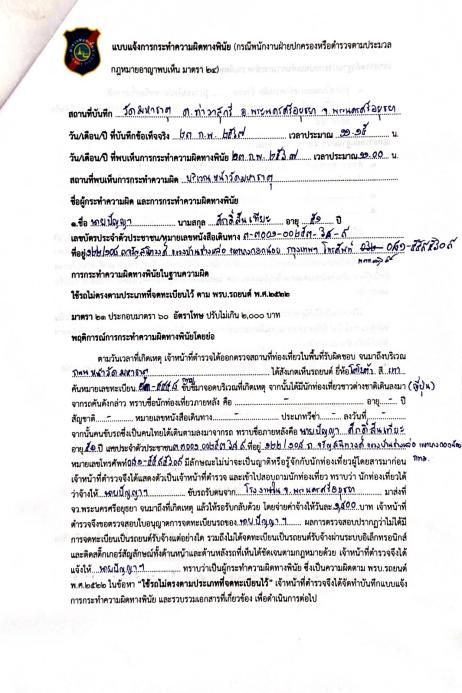 แบบแจ้งการกระทำความผิดทางพินัย (กรณีพนักงานฝ่ายปกครองหรือตำรวจตามประมวล
กฎหมายอาญาพบเห็น มาตรา ๒๔)
สถานที่บันทึก วัดมหาธาตุ ต.ท่าวาสุกรี อ.พระนครศรีอยุธยา จ.พระนครศรีอยุธยา
วัน/เดือน/ปี ที่บันทึกข้อเท็จจริง ๒๓ ก.พ. ๒๕๖๗ เวลาประมาณ ๑๑.๑๕ น.
วัน/เดือน/ปี ที่พบเห็นการกระทำความผิดทางพินัย ๒๓ ก.พ. ๒๕๖๗ เวลาประมาณ ๑๑.๐๐ น.
สถานที่พบเห็นการกระทำความผิด บริเวณหน้าวัดมหาธาตุ
ชื่อผู้กระทำความผิด และการกระทำความผิดทางพินัย
๑.ชื่อ นายปัญญา นามสกุล อายุ ๕๑ ปี
เลขบัตรประจำตัวประชาชน/หมายเลขหนังสือเดินทาง
ที่อยู่ กรุงเทพฯ โทรศัพท์
การกระทำความผิดทางพินัยในฐานความผิด
ใช้รถไม่ตรงตามประเภทที่จดทะเบียนไว้ ตาม พรบ.รถยนต์ พ.ศ.๒๕๒๒
มาตรา ๒๑ ประกอบมาตรา ๖๐ อัตราโทษ ปรับไม่เกิน ๒,๐๐๐ บาท
พฤติการณ์การกระทำความผิดทางพินัยโดยย่อ
ตามวันเวลาที่เกิดเหตุ เจ้าหน้าที่ตำรวจได้ออกตรวจสถานที่ท่องเที่ยวในพื้นที่รับผิดชอบ จนมาถึงบริเวณ
ถนนหน้าวัดมหาธาตุ ได้สังเกตเห็นรถยนต์ ยี่ห้อ โตโยต้า สี เทา
คันหมายเลขทะเบียน ขับขี่มาจอดบริเวณที่เกิดเหตุ จากนั้นได้มีนักท่องเที่ยวชาวต่างชาติเดินลงมา (ญี่ปุ่น)
จากรถคันดังกล่าว ทราบชื่อนักท่องเที่ยวภายหลัง คือ - อายุ - ปี
สัญชาติ - หมายเลขหนังสือเดินทาง - ประเภทวีซ่า - ลงวันที่ -
จากนั้นคนขับรถซึ่งเป็นคนไทยได้เดินตามลงมาจากรถ ทราบชื่อภายหลังคือ นายปัญญา
อายุ ๕๑ ปี เลขประจำตัวประชาชน ที่อยู่
หมายเลขโทรศัพท์ มีลักษณะไม่น่าจะเป็นญาติหรือรู้จักกับนักท่องเที่ยวผู้โดยสารมาก่อน กทม.
เจ้าหน้าที่ตำรวจจึงได้แสดงตัวเป็นเจ้าหน้าที่ตำรวจ และเข้าไปสอบถามนักท่องเที่ยว ทราบว่า นักท่องเที่ยวได้
ว่าจ้างให้ นายปัญญาฯ ขับรถรับตนจาก จ.พระนครศรีอยุธยา มาส่งที่
จว.พระนครศรีอยุธยา จนมาถึงที่เกิดเหตุ แล้วให้รอรับกลับด้วย โดยจ่ายค่าจ้างให้วันละ บาท เจ้าหน้าที่
ตำรวจจึงขอตรวจสอบใบอนุญาตการจดทะเบียนรถของ นายปัญญาฯ ผลการตรวจสอบปรากฏว่าไม่ได้มี
การจดทะเบียนเป็นรถยนต์รับจ้างแต่อย่างใด รวมถึงไม่ได้จดทะเบียนเป็นรถยนต์รับจ้างผ่านระบบอิเล็กทรอนิกส์
และติดสติ๊กเกอร์สัญลักษณ์ทั้งด้านหน้าและด้านหลังรถที่เห็นได้ชัดเจนตามกฎหมายด้วย เจ้าหน้าที่ตำรวจจึงได้
แจ้งให้ นายปัญญาฯ ทราบว่าเป็นผู้กระทำความผิดทางพินัย ซึ่งเป็นความผิดตาม พรบ.รถยนต์
พ.ศ.๒๕๒๒ ในข้อหา "ใช้รถไม่ตรงตามประเภทที่จดทะเบียนไว้" เจ้าหน้าที่ตำรวจจึงได้จัดทำบันทึกแบบแจ้ง
การกระทำความผิดทางพินัย และรวบรวมเอกสารที่เกี่ยวข้อง เพื่อดำเนินการต่อไป